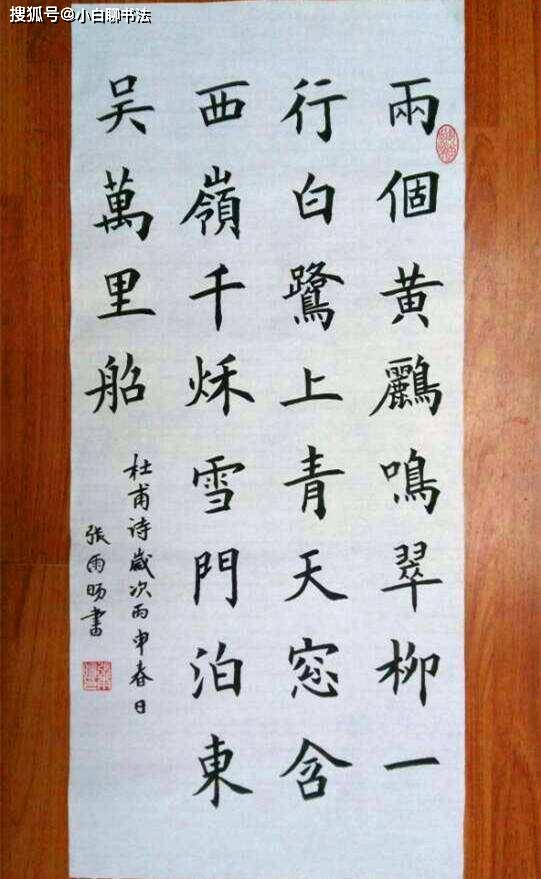 搜狐号@小白聊书法
兩個黄鸝鳴翠柳一
行白鷺上青天窓含
西嶺千秌雪門泊東
吴萬里船
杜甫诗歲次丙申春日
張雨旸書